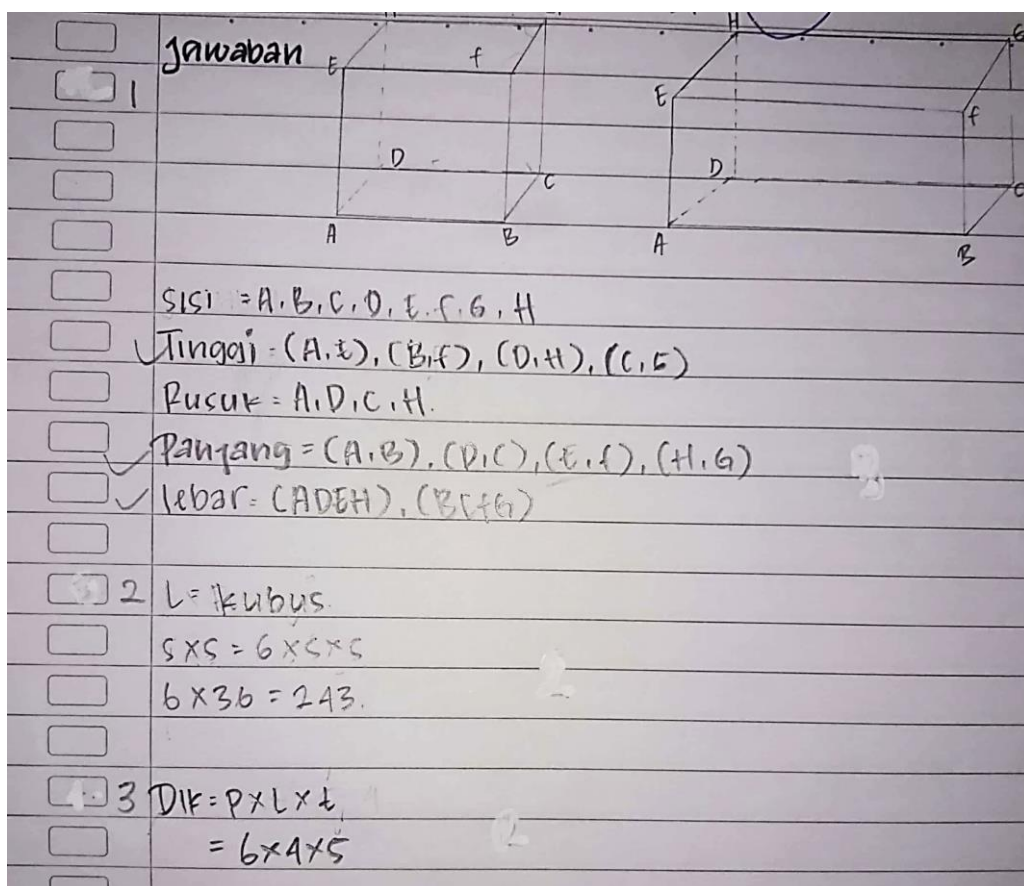 Jawaban
H
G
E
f
E
f
1
D
C
D
C
A
B
A
B
sisi = A, B, C, D, E, F, G, H
Tinggi = (A,E), (B,f), (D,H), (C,G)
Rusuk = A, D, C, H.
Panjang = (A,B), (D,C), (E,f), (H,G)
lebar = (ADEH), (BCFG)
2 L = kubus.
s x s = 6 x s x s
6 x 36 = 243.
3 DIK = P x L x t
= 6 x 4 x 5